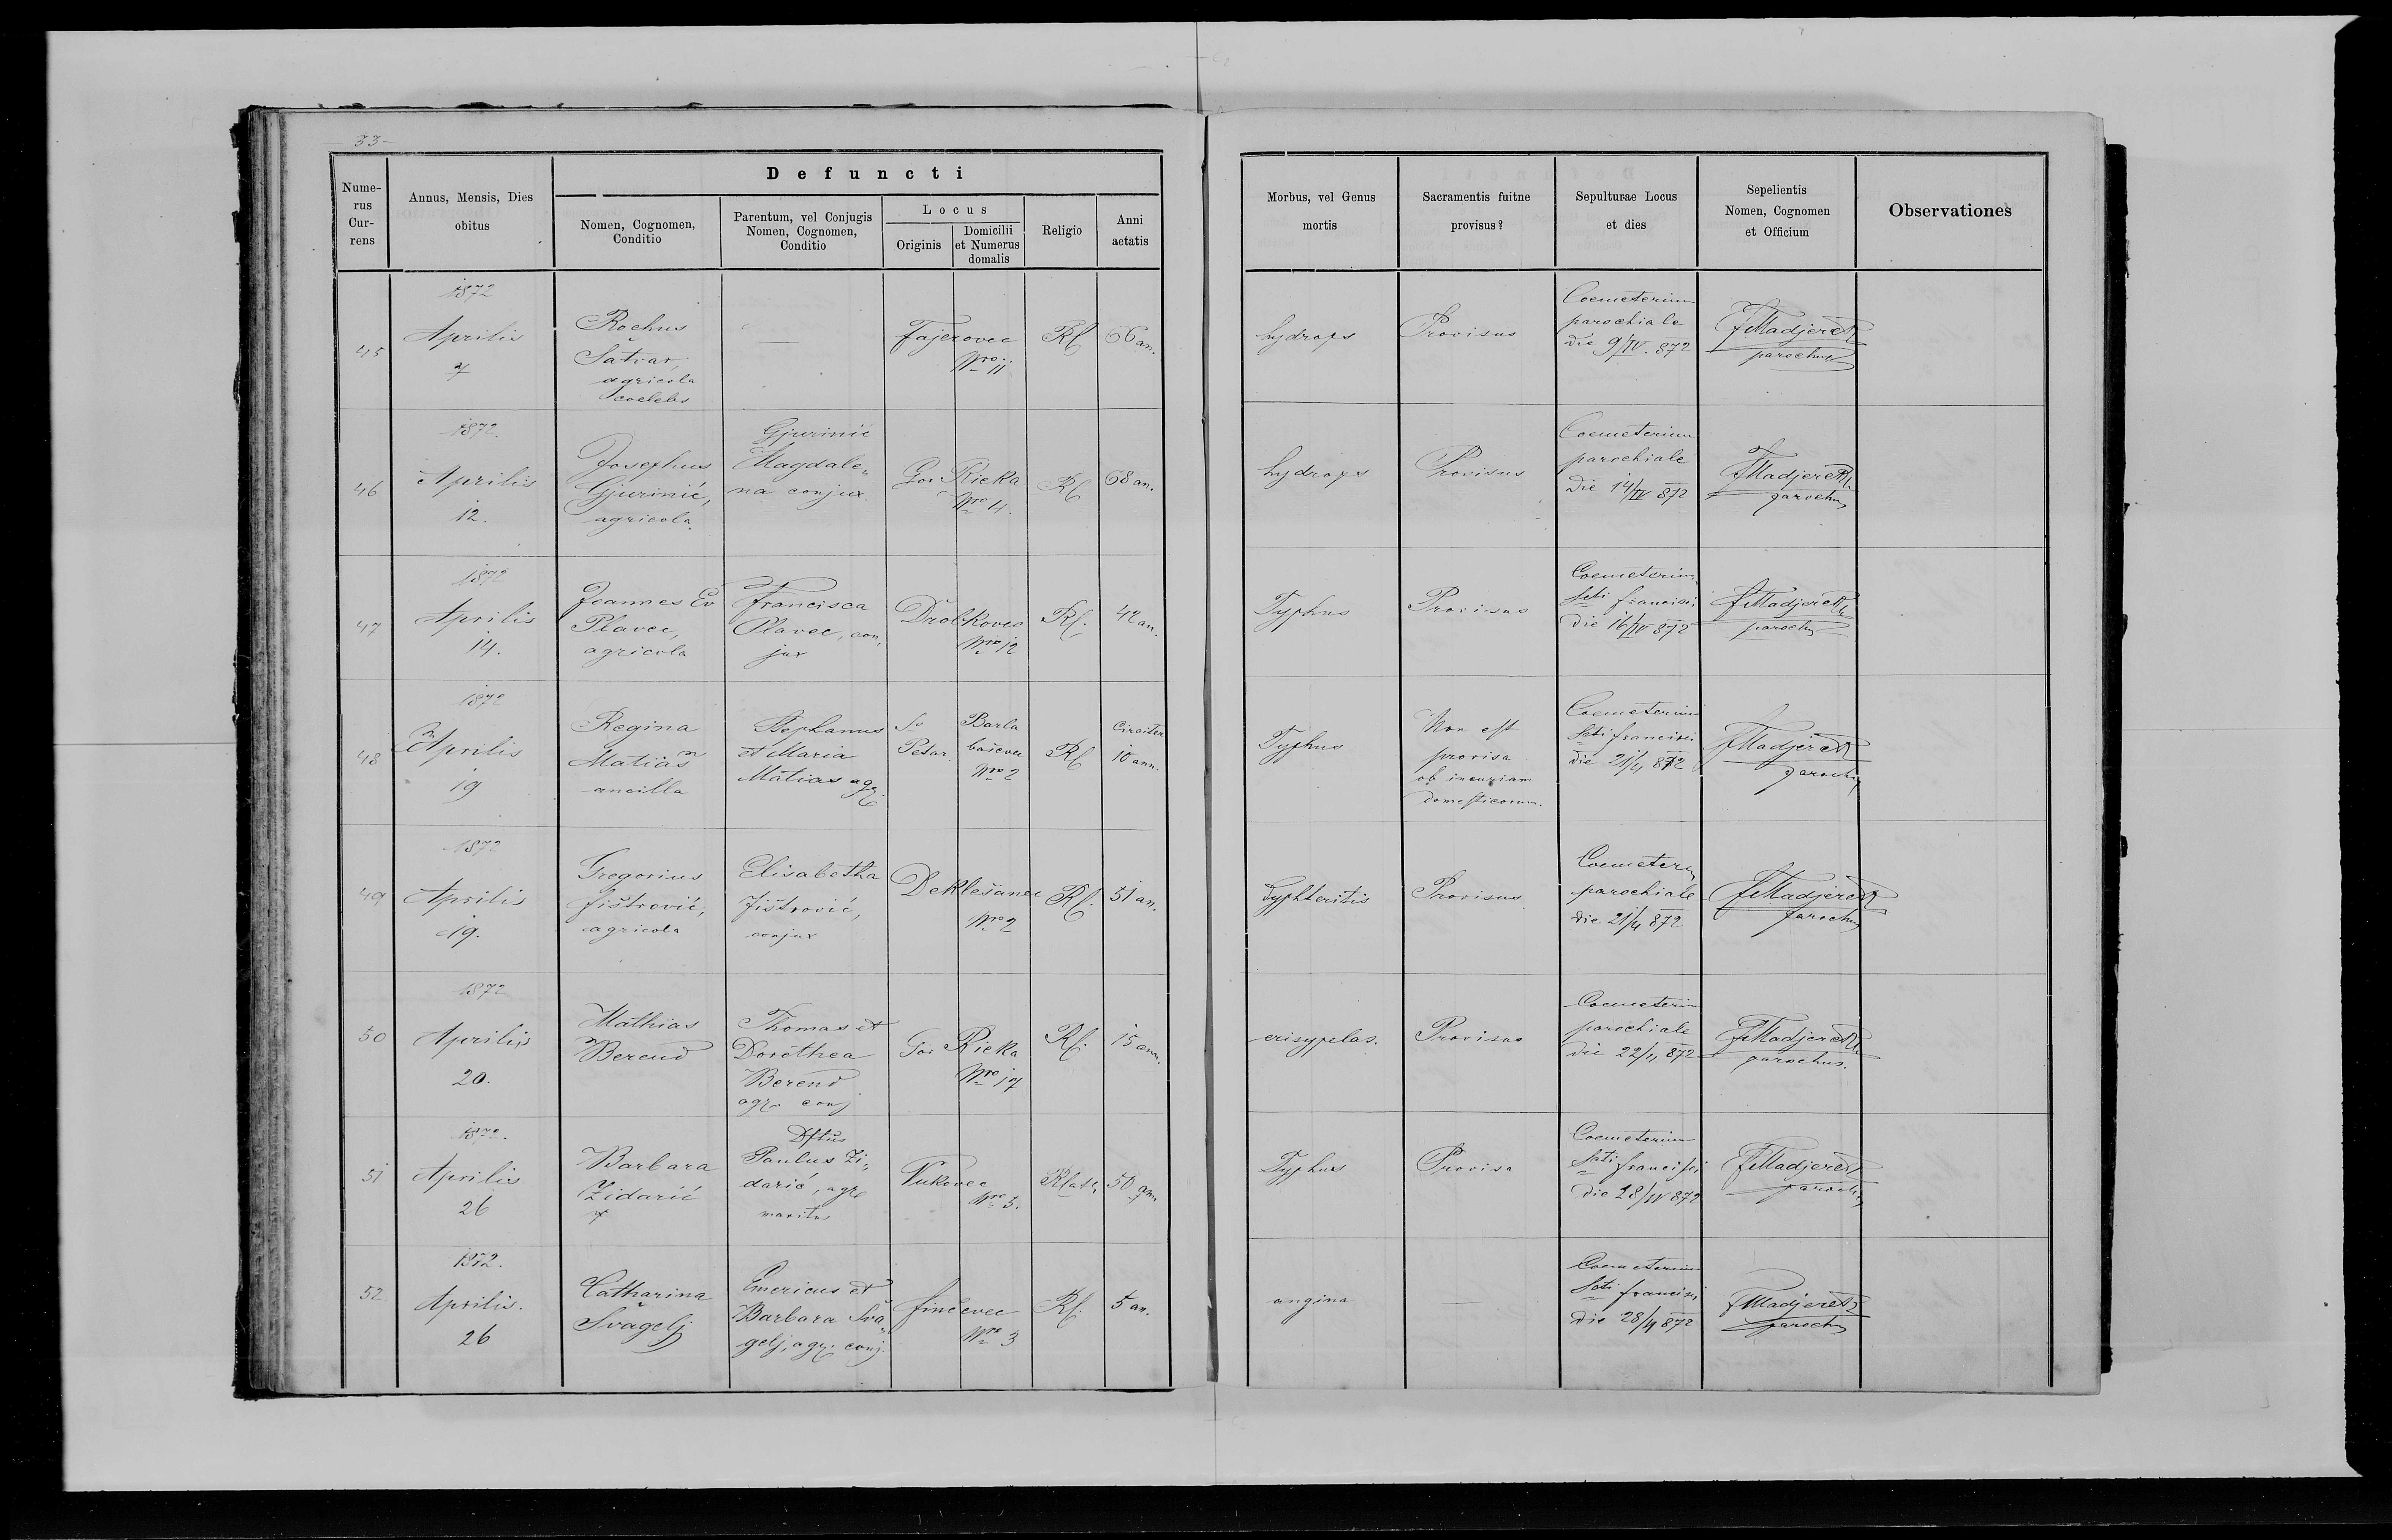 33
Defuncti
Nume-
rus
Cur-
rens
Annus, Mensis, Dies
obitus
Nomen, Cognomen,
Conditio
Parentum, vel Conjugis
Nomen, Cognomen,
Conditio
Locus
Originis
Domicilii
et Numerus
domalis
Religio
Anni
aetatis
Morbus, vel Genus
mortis
Sacramentis fuitne
provisus?
Sepulturae Locus
et dies
Sepelientis
Nomen, Cognomen
et Officium
Observationes
45
1872
Aprilis
7
Rochus
Šatvar,
agricola
coelebs
—
Fajerovec
Nro 11
RC
66 an.
hydrops
Provisus
Coemeterium
parochiale
die 9/IV. 872
FMadjeretz
parochus
46
1872.
Aprilis
12.
Josephus
Gjurinić,
agricola.
Gjurinić
Magdale„
na conjux.
Gor Rieka
Nro 4.
RC
68 an.
hydrops
Provisus
Coemeterium
parochiale
die 14/IV 872
FMadjeretz
parochus
47
1872
Aprilis
14.
Joannes Ev
Plavec,
agricola
Francisca
Plavec, con„
jux
Drolkovec
Nro 12
RC.
42 an.
Typhus
Provisus
Coemeterium
Scti francisci
die 16/IV 872
FMadjeretz
parochus
48
1872
Aprilis
19
Regina
Matias
ancilla
Stephanus
et Maria
Matias agr.
Sv
Petar
Barla
baševec
Nro 2
RC
Circiter
10 ann.
Typhus
Non est
provisa
ob incuriam
domesticorum.
Coemeterium
Scti francisci
die 21/4 872
FMadjeretz
parochus
49
1872
Aprilis
19.
Gregorius
fištrović,
agricola
Elisabetha
fištrović,
conjux
Deklešanec
Nro 2
RC.
51 an.
Dyphteritis
Provisus
Coemeterium
parochiale
die 21/4 872
FMadjeretz
parochus
50
1872
Aprilis
20.
Mathias
Berend
Thomas et
Dorothea
Berend
agr. conj
Gor Rieka
Nro 17
RC.
15 ann.
erisypelas.
Provisus
Coemeterium
parochiale
die 22/4 872
FMadjeretz
parochus.
51
1872.
Aprilis
26
Barbara
Zidarić
Dftus
Paulus Zi„
darić, agr
maritus
Vukovec
Nro 5.
50 ann.
Typhus
Provisa
Coemeterium
Scti francisci
die 28/IV 872
FMadjeretz
parochus
52
1872.
Aprilis.
26
Catharina
Švagelj
Emericus et
Barbara Šva„
gelj, agr. conj.
finčevec
Nro 3
RC.
5 an.
angina
—
Coemeterium
Scti francisci
die 28/4 872
FMadjeretz
parochus